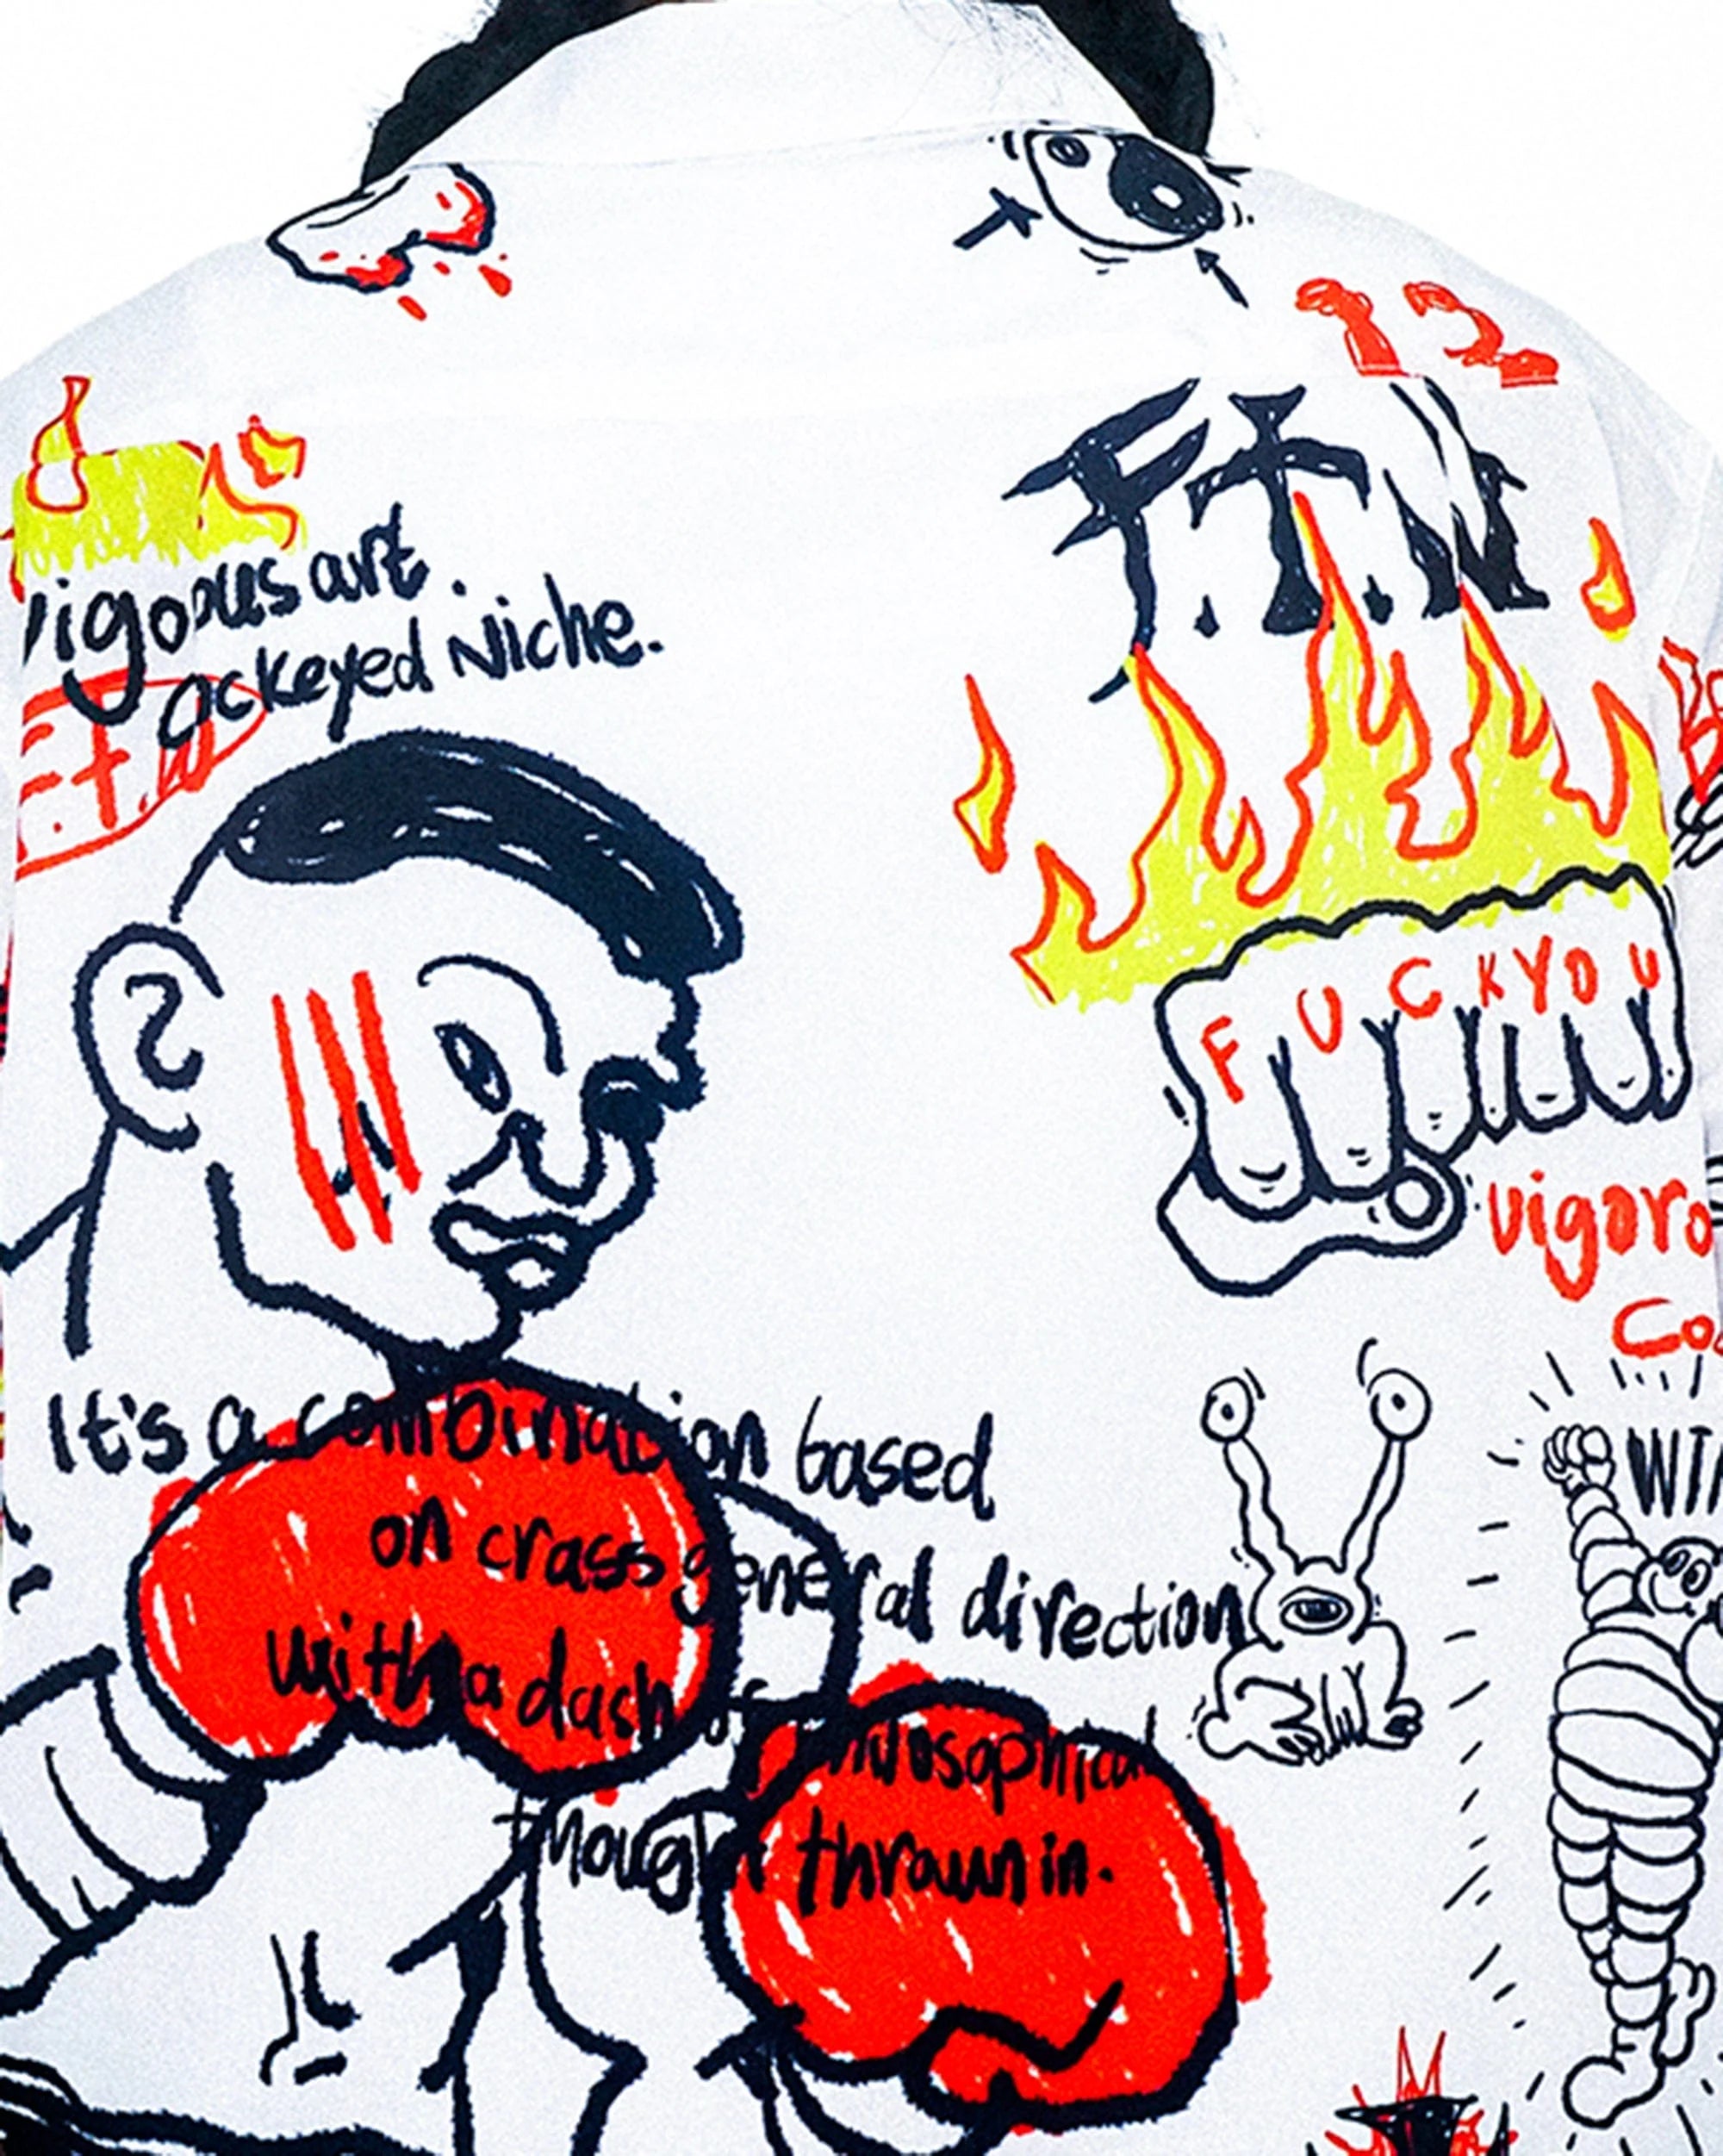 12
F.T.W
vigorous art.
ackeyed Niche.
F.T.W
FUCKYOU
vigoro
Co
It's a combination based
on crass general direction
with a dash of philosophical
thought thrown in.
WI